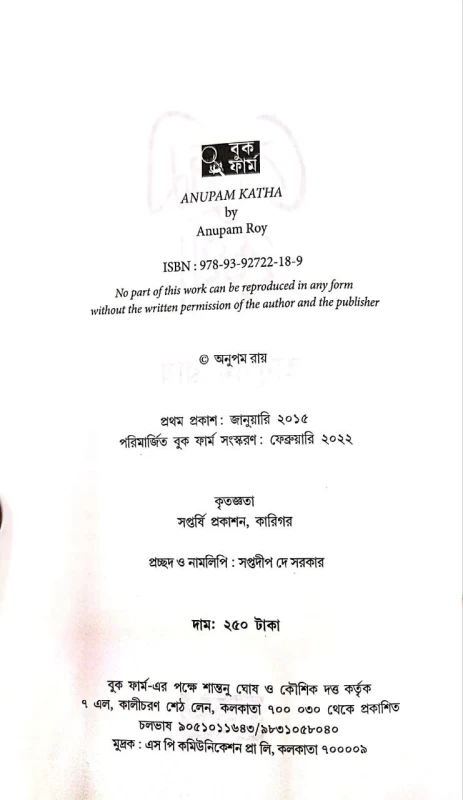 বুক
ফার্ম
ANUPAM KATHA
by
Anupam Roy
ISBN : 978-93-92722-18-9
No part of this work can be reproduced in any form
without the written permission of the author and the publisher
© অনুপম রায়
প্রথম প্রকাশ : জানুয়ারি ২০১৫
পরিমার্জিত বুক ফার্ম সংস্করণ : ফেব্রুয়ারি ২০২২
কৃতজ্ঞতা
সপ্তর্ষি প্রকাশন, কারিগর
প্রচ্ছদ ও নামলিপি : সপ্তদীপ দে সরকার
দাম: ২৫০ টাকা
বুক ফার্ম-এর পক্ষে শান্তনু ঘোষ ও কৌশিক দত্ত কর্তৃক
৭ এল, কালীচরণ শেঠ লেন, কলকাতা ৭০০ ০৩০ থেকে প্রকাশিত
চলভাষ ৯০৫১০১১৬৪৩/৯৮৩১০৫৮০৪০
মুদ্রক : এস পি কমিউনিকেশন প্রা লি, কলকাতা ৭০০০০৯